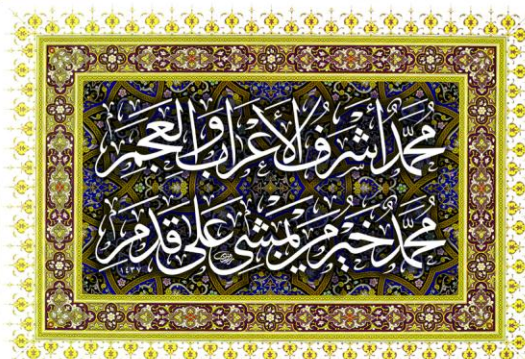 مُحَمَّدٌ أَشْرَفُ الأَعْرَابِ وَالعَجَمِ
مُحَمَّدٌ خَيْرُ مَنْ يَمْشِي عَلَى قَدَمِ
١٤٣٧